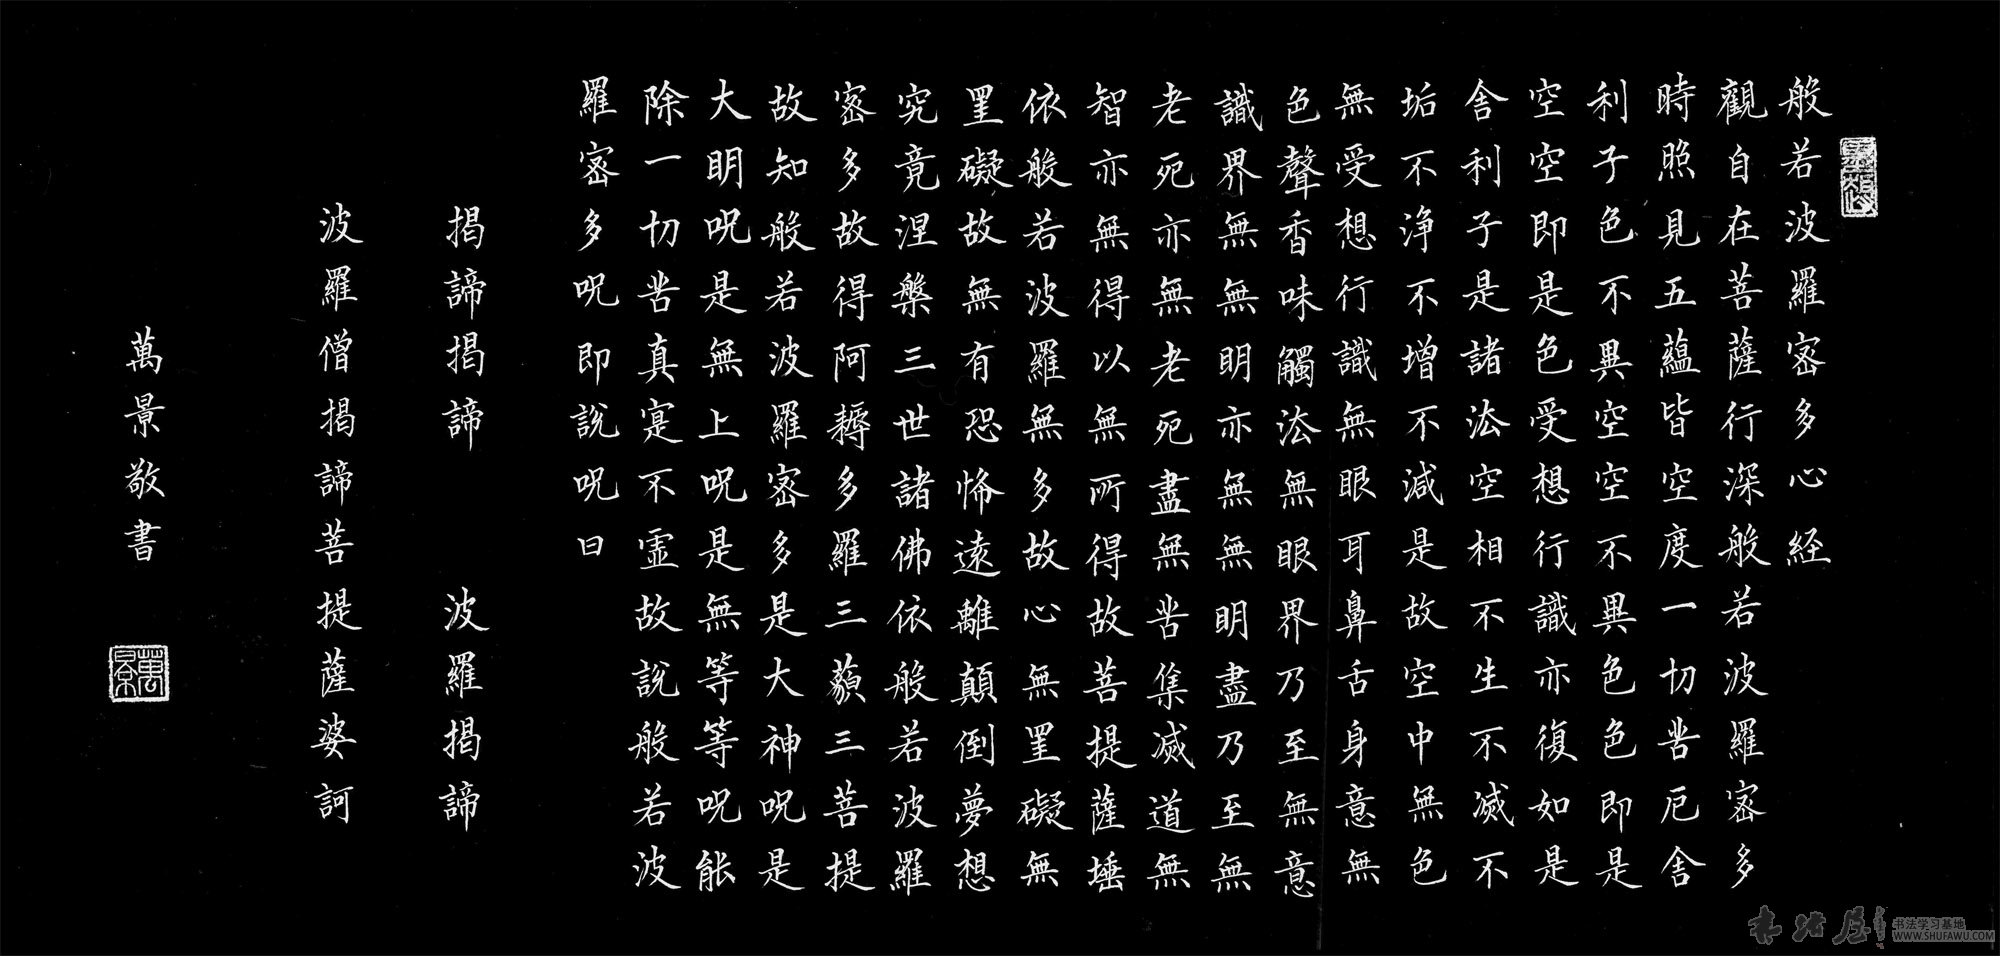 般若波羅密多心経
觀自在菩薩行深般若波羅密多
時照見五蘊皆空度一切苦厄舍
利子色不異空空不異色色即是
空空即是色受想行識亦復如是
舍利子是諸法空相不生不滅不
垢不淨不增不減是故空中無色
無受想行識無眼耳鼻舌身意無
色聲香味觸法無眼界乃至無意
識界無無明亦無無明盡乃至無
老死亦無老死盡無苦集滅道無
智亦無得以無所得故菩提薩埵
依般若波羅無多故心無罣礙無
罣礙故無有恐怖遠離顛倒夢想
究竟涅槃三世諸佛依般若波羅
密多故得阿耨多羅三藐三菩提
故知般若波羅密多是大神呪是
大明呪是無上呪是無等等呪能
除一切苦真寔不虛故說般若波
羅密多呪即說呪曰
揭諦揭諦 波羅揭諦
波羅僧揭諦菩提薩婆訶
萬景敬書
萬景
书法学习基地
WWW.SHUFAWU.COM